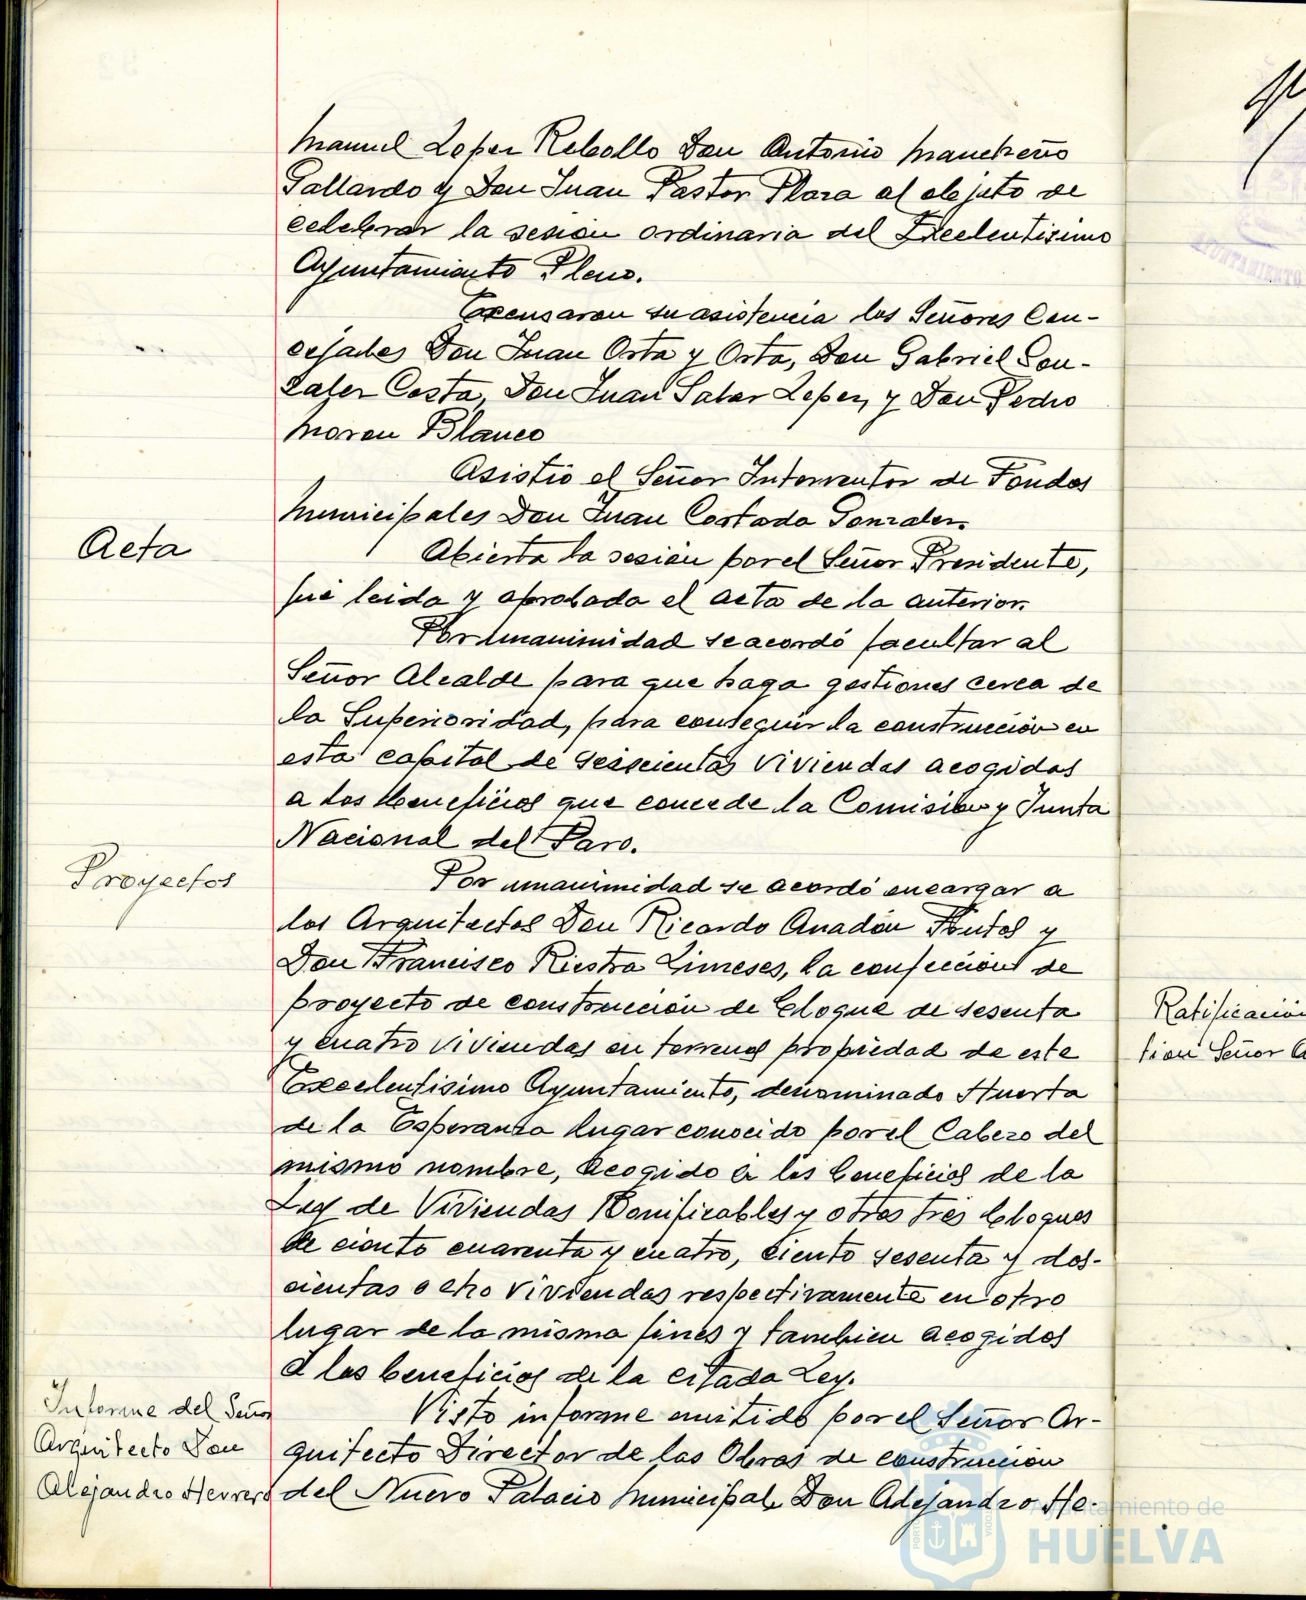 Manuel Lopez Rebollo Don Antonio Mancheño
Gallardo y Don Juan Pastor Plaza al objeto de
celebrar la sesión ordinaria del Excelentisimo
Ayuntamiento Pleno.
Excusaron su asistencia los Señores Con-
cejales Don Juan Orta y Orta, Don Gabriel Gon-
zalez Costa, Don Juan Salas Lopez, y Don Pedro
Moron Blanco
Asistió el Señor Interventor de Fondos
Municipales Don Juan Gonzalez.
Acta
Abierta la sesión por el Señor Presidente,
fué leida y aprobada el acta de la anterior.
Por unanimidad se acordó facultar al
Señor Alcalde para que haga gestiones cerca de
la Superioridad, para conseguir la construcción en
esta capital de seiscientas viviendas acogidas
a los beneficios que concede la Comision y Junta
Nacional del Paro.
Proyectos
Por unanimidad se acordó encargar a
los Arquitectos Don Ricardo Anadón Frutos y
Don Francisco Riestra Limeses, la confección de
proyecto de construcción de bloque de sesenta
y cuatro viviendas en terrenos propiedad de este
Excelentisimo Ayuntamiento, denominado Huerta
de la Esperanza lugar conocido por el Cabezo del
mismo nombre, acogido a los beneficios de la
Ley de Viviendas Bonificables y otros tres bloques
de ciento cuarenta y cuatro, ciento sesenta y dos-
cientas ocho viviendas respectivamente en otro
lugar de la misma finca y tambien acogidos
a los beneficios de la citada Ley.
Informe del Señor
Arquitecto Don
Alejandro Herrero
Visto informe emitido por el Señor Ar-
quitecto Director de las Obras de construcción
del Nuevo Palacio Municipal, Don Alejandro He-
Ratificación
tion Señor
Ayuntamiento de
HUELVA